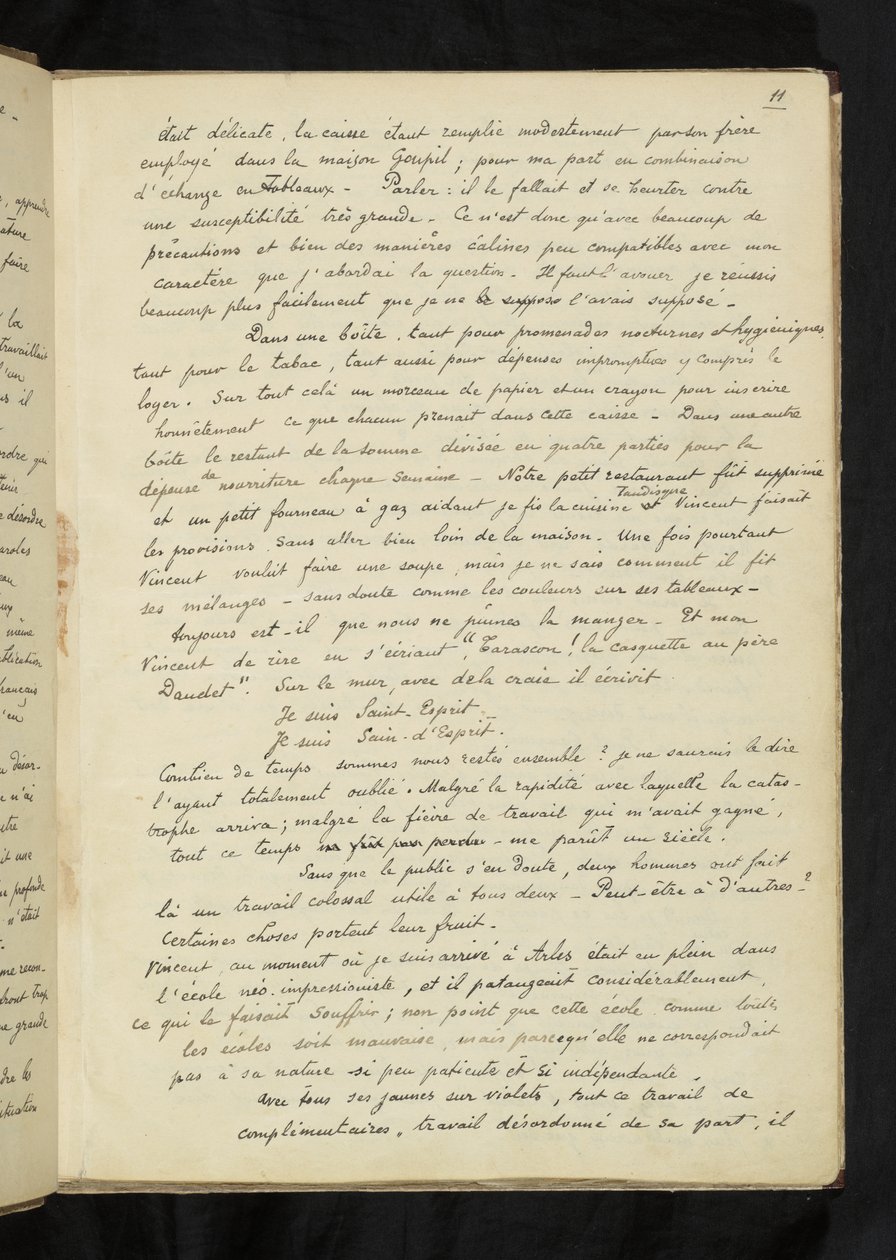 11
était délicate, la caisse étant remplie modestement par son frère
employé dans la maison Goupil; pour ma part en combinaison
d'échange en Tableaux - Parler: il le fallait et se heurter contre
une susceptibilité très grande. Ce n'est donc qu'avec beaucoup de
précautions et bien des manières calines peu compatibles avec mon
caractère que j'abordai la question. Il faut l'avouer je réussis
beaucoup plus facilement que je ne le suppose l'avais supposé -
Dans une boîte, tant pour promenades nocturnes et hygiéniques,
tant pour le tabac, tant aussi pour dépenses impromptues y compris le
loyer. Sur tout celà un morceau de papier et un crayon pour inscrire
honnêtement ce que chacun prenait dans cette caisse - Dans une autre
boîte le restant de la somme divisée en quatre parties pour la
dépense de nourriture chaque semaine - Notre petit restaurant fût supprimé
et un petit fourneau à gaz aidant je fis la cuisine et Tandisque Vincent faisait
les provisions, sans aller bien loin de la maison. Une fois pourtant
Vincent voulût faire une soupe, mais je ne sais comment il fit
ses mélanges - sans doute comme les couleurs sur ses tableaux -
toujours est-il que nous ne pûmes la manger - Et mon
Vincent de rire en s'écriant "Tarascon! la casquette au père
Daudet". Sur le mur, avec de la craie il écrivit
Je suis Saint-Esprit -
Je suis Sain-d'Esprit.
Combien de temps sommes nous restés ensemble? je ne saurais le dire
l'ayant totalement oublié. Malgré la rapidité avec laquelle la catas-
trophe arriva; malgré la fièvre de travail qui m'avait gagné,
tout ce temps ne fût pas perdu - me parût un siècle.
Sans que le public s'en doute, deux hommes ont fait
là un travail colossal utile à tous deux - Peut-être à d'autres-?
Certaines choses portent leur fruit -
Vincent, au moment où je suis arrivé à Arles était en plein dans
l'école néo-impressioniste, et il pataugeait considérablement,
ce qui le faisait souffrir; non point que cette école, comme toutes
les écoles soit mauvaise, mais parcequ'elle ne correspondait
pas à sa nature si peu patiente et si indépendante,
avec tous ses jaunes sur violets, tout ce travail de
complémentaires, travail désordonné de sa part, il